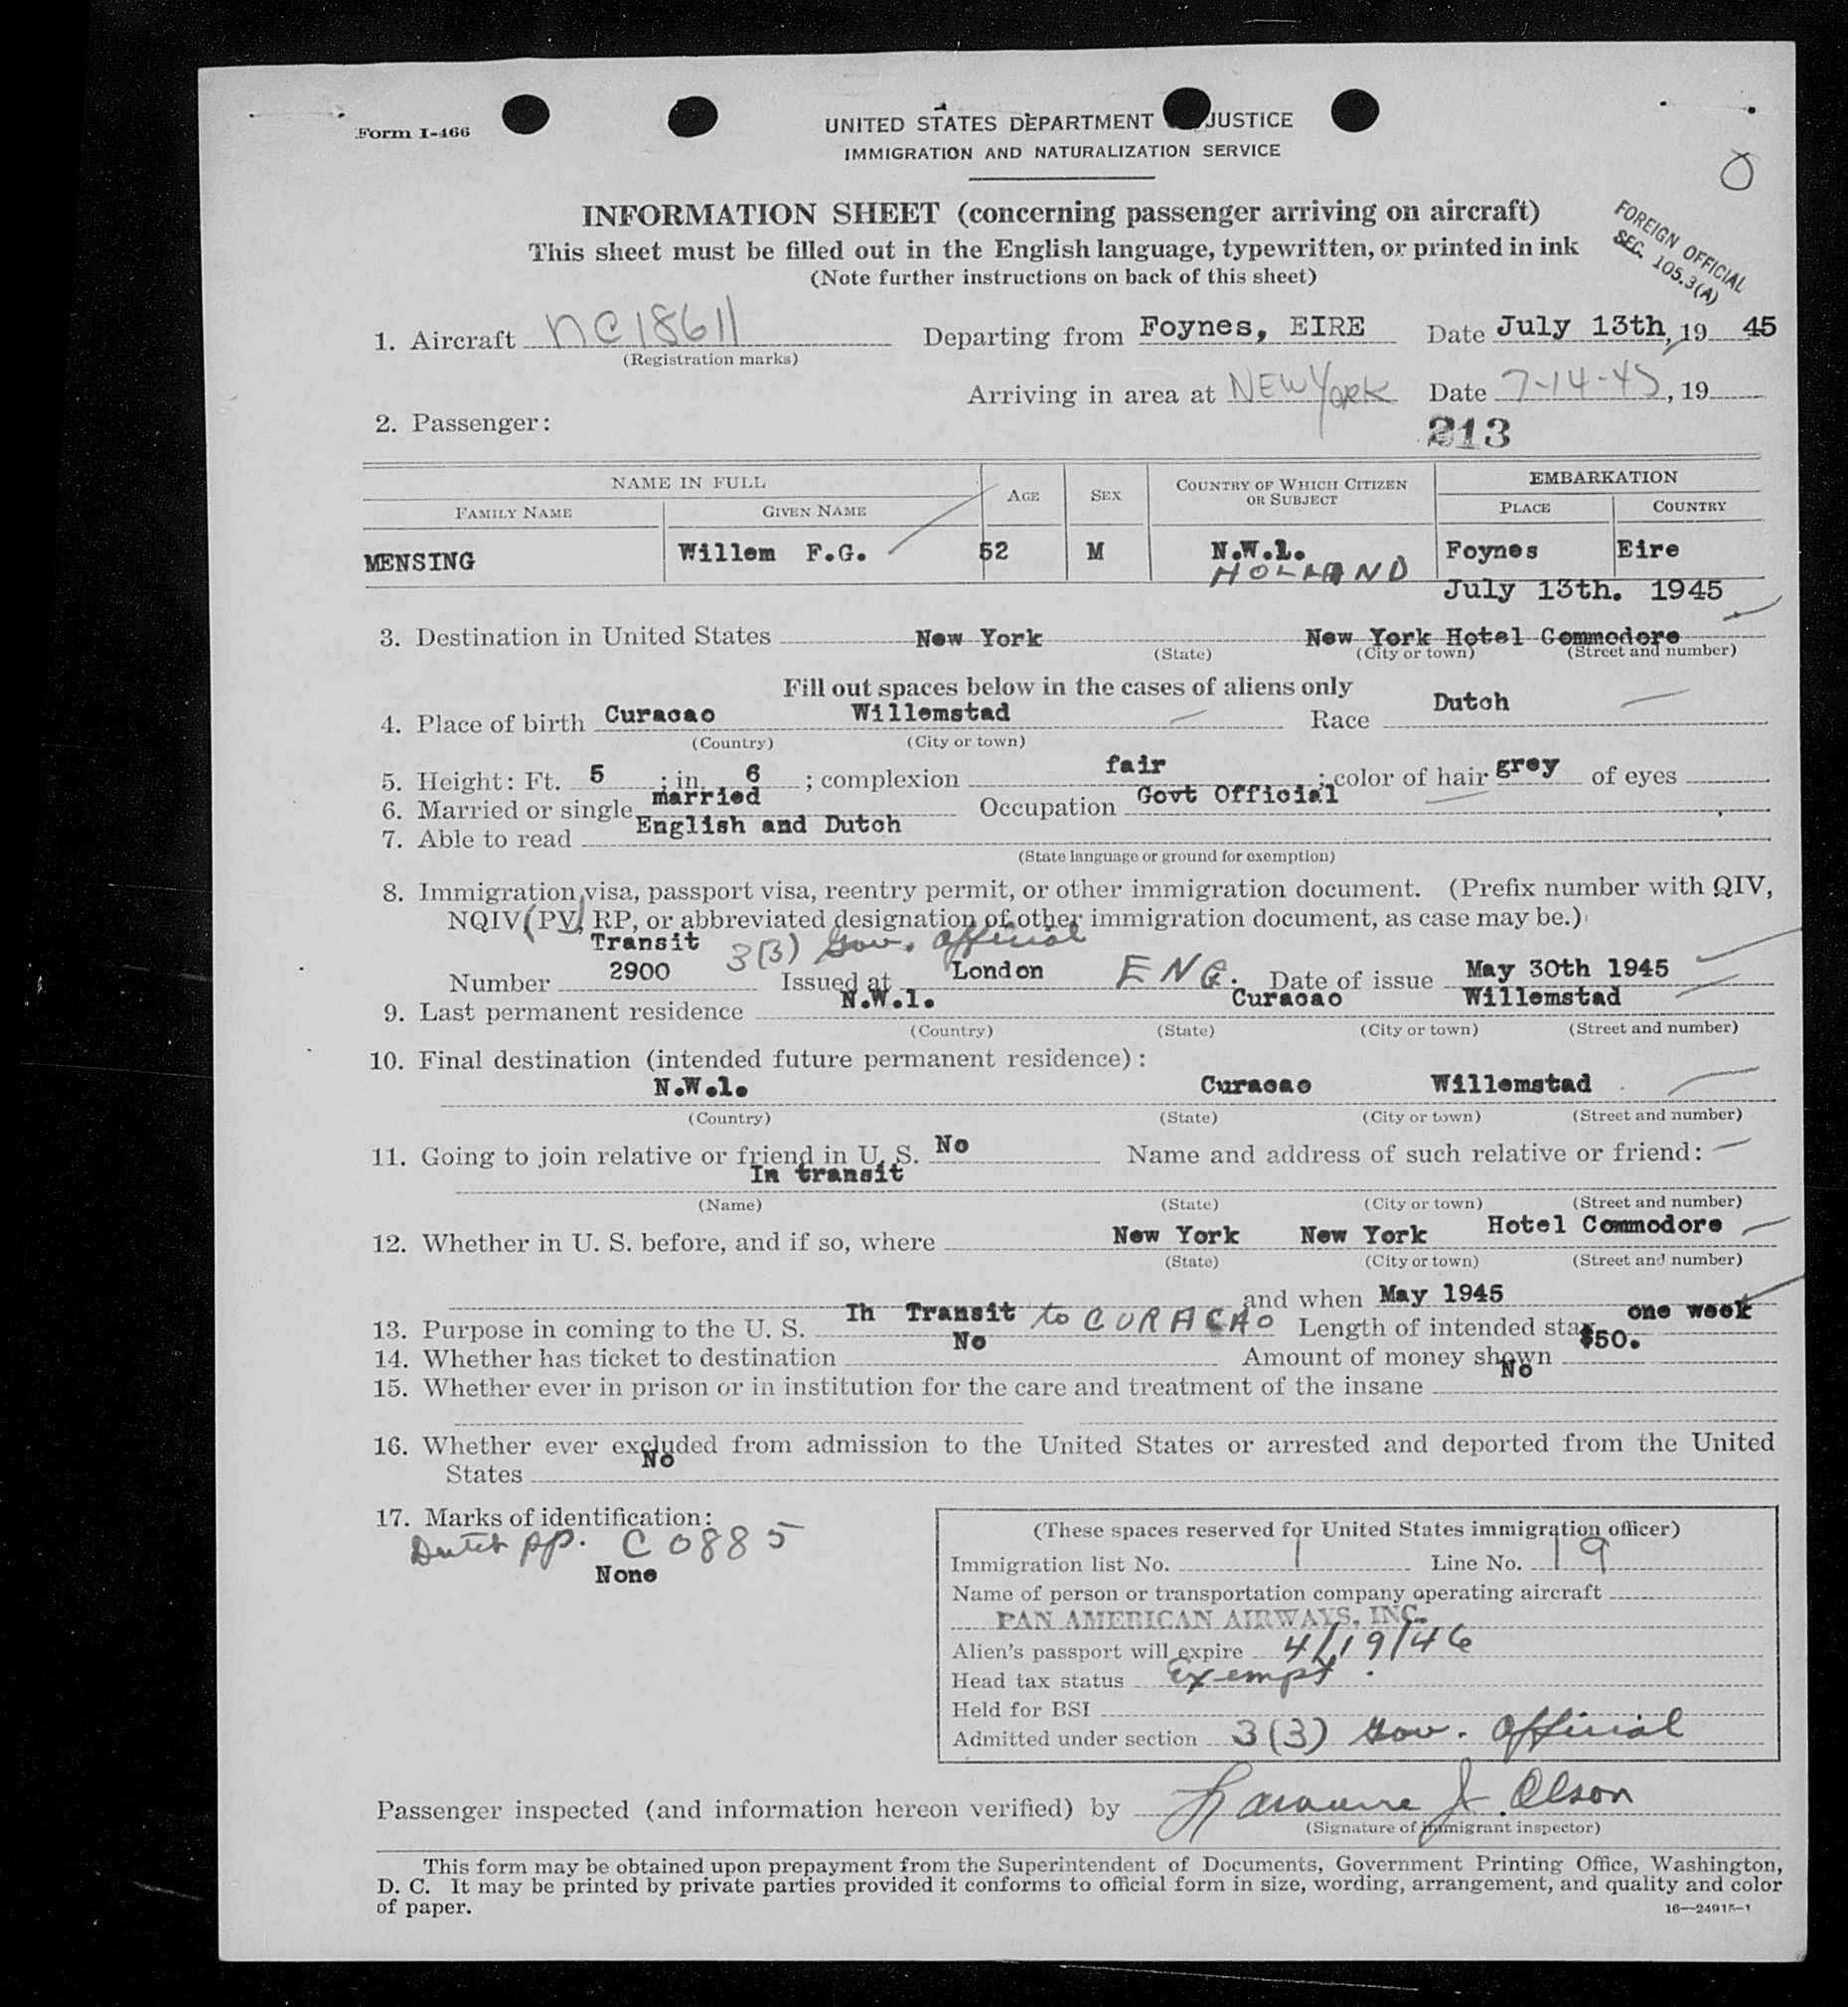 Form I-466
UNITED STATES DEPARTMENT JUSTICE
IMMIGRATION AND NATURALIZATION SERVICE
INFORMATION SHEET (concerning passenger arriving on aircraft)
This sheet must be filled out in the English language, typewritten, or printed in ink
(Note further instructions on back of this sheet)
FOREIGN OFFICIAL
SEC. 105.3(A)
1. Aircraft NC18611 Departing from Foynes, EIRE Date July 13th, 19 45
(Registration marks)
Arriving in area at NEW YORK Date 7-14-45, 19
2. Passenger:
213
NAME IN FULL AGE SEX COUNTRY OF WHICH CITIZEN OR SUBJECT EMBARKATION
FAMILY NAME GIVEN NAME PLACE COUNTRY
MENSING Willem F.G. 52 M N.W.I. Foynes Eire
HOLLAND
July 13th. 1945
3. Destination in United States New York New York Hotel Commodore
(State) (City or town) (Street and number)
Fill out spaces below in the cases of aliens only
4. Place of birth Curacao Willemstad Race Dutch
(Country) (City or town)
5. Height: Ft. 5 ; in. 6 ; complexion fair ; color of hair grey of eyes
6. Married or single married Occupation Govt Official
7. Able to read English and Dutch
(State language or ground for exemption)
8. Immigration visa, passport visa, reentry permit, or other immigration document. (Prefix number with QIV,
NQIV (PV) RP, or abbreviated designation of other immigration document, as case may be.)
Transit 3(3) Gov. Official
Number 2900 Issued at London ENG. Date of issue May 30th 1945
9. Last permanent residence N.W.1. Curacao Willemstad
(Country) (State) (City or town) (Street and number)
10. Final destination (intended future permanent residence):
N.W.1. Curacao Willemstad
(Country) (State) (City or town) (Street and number)
11. Going to join relative or friend in U. S. No Name and address of such relative or friend:
In transit
(Name) (State) (City or town) (Street and number)
12. Whether in U. S. before, and if so, where New York New York Hotel Commodore
(State) (City or town) (Street and number)
and when May 1945
13. Purpose in coming to the U. S. Ih Transit to CURACAO Length of intended stay one week
14. Whether has ticket to destination No Amount of money shown $50.
15. Whether ever in prison or in institution for the care and treatment of the insane No
16. Whether ever excluded from admission to the United States or arrested and deported from the United
States No
17. Marks of identification:
Dutch pp. C 0885
None
(These spaces reserved for United States immigration officer)
Immigration list No. 1 Line No. 19
Name of person or transportation company operating aircraft
PAN AMERICAN AIRWAYS, INC.
Alien's passport will expire 4/19/46
Head tax status Exempt.
Held for BSI
Admitted under section 3(3) Gov. Official
Passenger inspected (and information hereon verified) by J. Olson
(Signature of immigrant inspector)
This form may be obtained upon prepayment from the Superintendent of Documents, Government Printing Office, Washington,
D. C. It may be printed by private parties provided it conforms to official form in size, wording, arrangement, and quality and color
of paper.
16—24915-1